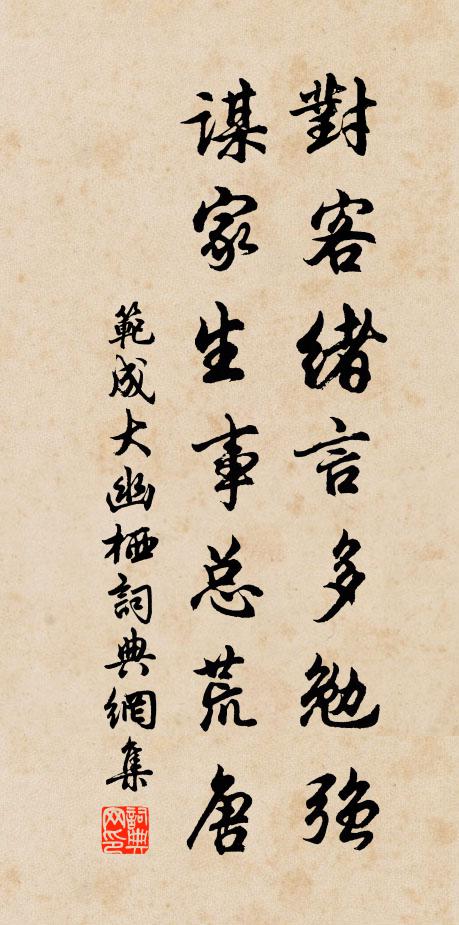 對客緒言多勉强
謀家生事总荒唐
範成大幽栖詞典網集
詞典网印